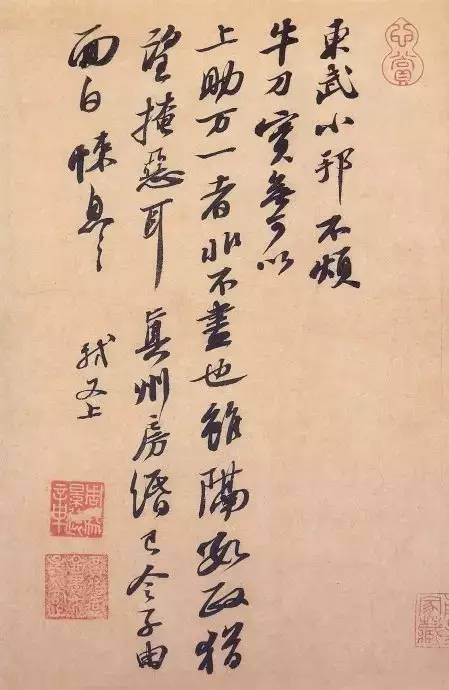 東武小邦不煩
牛刀實無可以
上助万一者非不盡也雖隔數政猶
望掩惡耳真州房緡已令子由
面白悚息々
軾又上
家藏